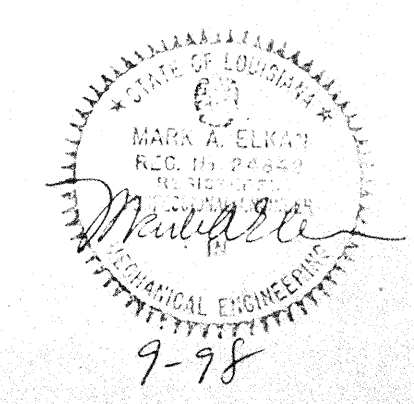 ★ STATE OF LOUISIANA ★
MARK A. ELKAN
REG. No. 24842
REGISTERED
PROFESSIONAL ENGINEER
IN
MECHANICAL ENGINEERING
9-98